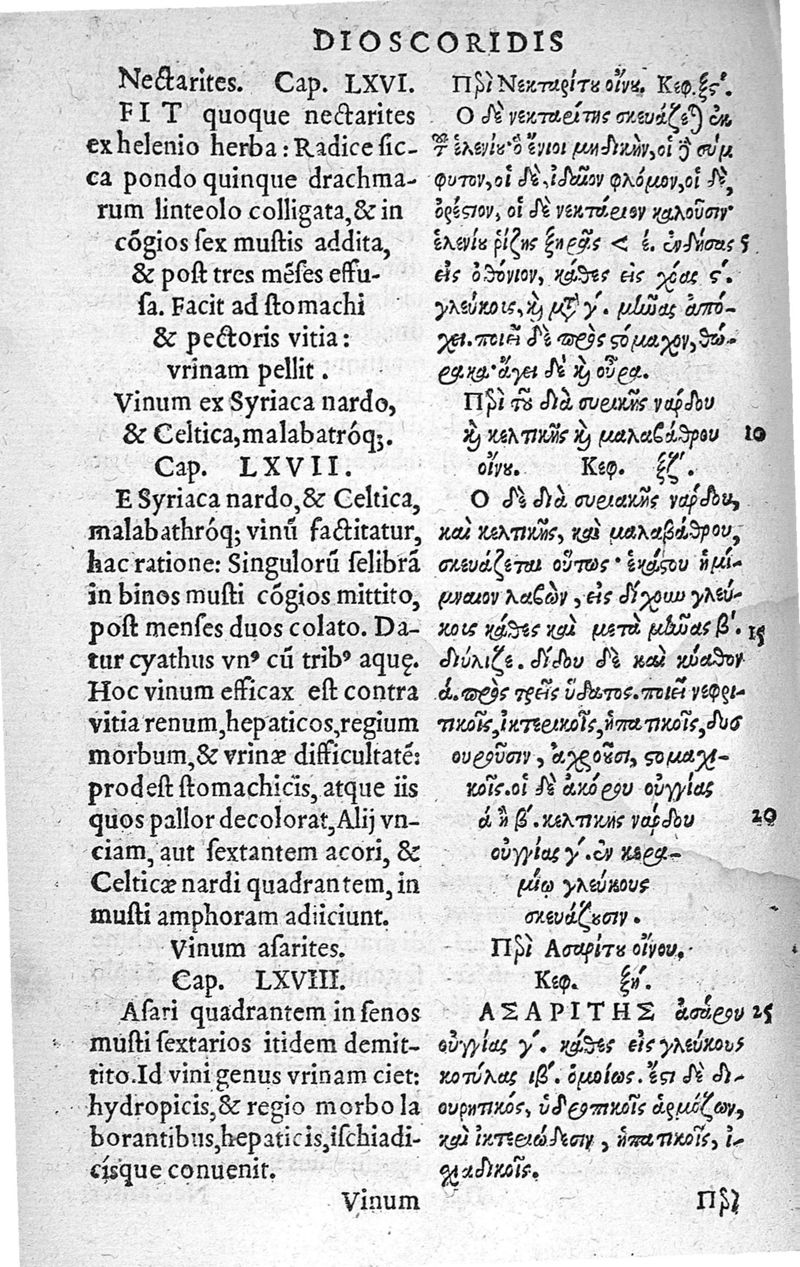 DIOSCORIDIS
Nectarites. Cap. LXVI.
FIT quoque nectarites
ex helenio herba: Radice ſic-
ca pondo quinque drachma-
rum linteolo colligata,& in
cõgios ſex muſtis addita,
& poſt tres mẽſes effu-
ſa. Facit ad ſtomachi
& pectoris vitia:
vrinam pellit.
Vinum ex Syriaca nardo,
& Celtica, malabatróq;.
Cap. LXVII.
E Syriaca nardo,& Celtica,
malabathróq; vinũ factitatur,
hac ratione: Singulorũ ſelibrã
in binos muſti cõgios mittito,
poſt menſes duos colato. Da-
tur cyathus vnꝰ cũ tribꝰ aquę.
Hoc vinum efficax eſt contra
vitia renum, hepaticos, regium
morbum,& vrinæ difficultatẽ:
prodeſt ſtomachicis, atque iis
quos pallor decolorat, Alij vn-
ciam, aut ſextantem acori, &
Celticæ nardi quadrantem, in
muſti amphoram adiiciunt.
Vinum aſarites.
Cap. LXVIII.
Aſari quadrantem in ſenos
muſti ſextarios itidem demit-
tito. Id vini genus vrinam ciet:
hydropicis,& regio morbo la
borantibus, hepaticis, iſchiadi-
ciſque conuenit.
Vinum
Περὶ Νεκταρίτου οἴνου. Κεφ. ξϛʹ.
Ο δὲ νεκταρίτης σκευάζεται ἐκ
τοῦ ἑλενίου· ὃ ἔνιοι μηδικὴν, οἱ δὲ σύμ
φυτον, οἱ δὲ, ἰδαῖον φλόμον, οἱ δὲ,
ὀρέστιον, οἱ δὲ νεκτάριον καλοῦσιν·
ἑλενίου ῥίζης ξηρᾶς < έ. ἐνδήσας 5
εἰς ὀθόνιον, κάθες εἰς χόας ϛʹ.
γλεύκοις, καὶ μετὰ γʹ. μῆνας ἀπό-
χει. ποιεῖ δὲ πρὸς στόμαχον, θώ-
ρακα· ἄγει δὲ καὶ οὖρα.
Περὶ τοῦ διὰ συρικῆς νάρδου
καὶ κελτικῆς καὶ μαλαβάθρου 10
οἴνου. Κεφ. ξζʹ.
Ο δὲ διὰ συριακῆς νάρδου,
καὶ κελτικῆς, καὶ μαλαβάθρου,
σκευάζεται οὕτως· ἑκάστου ἡμί-
μναιον λαβὼν, εἰς δίχουν γλεύ-
κοις κάθες καὶ μετὰ μῆνας βʹ. 15
διύλιζε. δίδου δὲ καὶ κύαθον
ά. πρὸς τρεῖς ὕδατος. ποιεῖ νεφρι-
τικοῖς, ἰκτερικοῖς, ἡπατικοῖς, δυσ
ουροῦσιν, ἀχροῦσι, στομαχι-
κοῖς. οἱ δὲ ἀκόρου οὐγγίας
ά ἢ βʹ. κελτικῆς νάρδου 20
οὐγγίας γʹ. ἐν κερα-
μίῳ γλεύκους
σκευάζουσιν.
Περὶ Ασαρίτου οἴνου.
Κεφ. ξηʹ.
ΑΣΑΡΙΤΗΣ ἀσάρου 25
οὐγγίας γʹ. κάθες εἰς γλεύκους
κοτύλας ιβʹ. ὁμοίως. ἔστι δὲ δι-
ουρητικός, ὑδρωπικοῖς ἁρμόζων,
καὶ ἰκτεριώδεσιν, ἡπατικοῖς, ἰ-
σχιαδικοῖς.
Περὶ